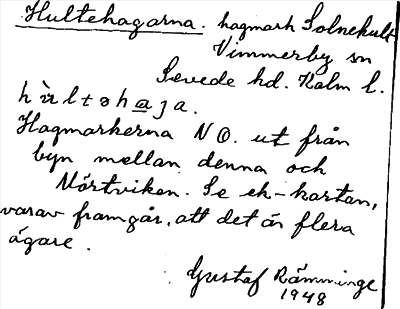 Hultehagarna. hagmark Solnehult
Vimmerby sn
Sevede hd. Kalm l.
hùltəha̲ja.
Hagmarkerna NO. ut från
byn mellan denna och
Mörtviken. Se ek-kartan,
varav framgår, att det är flera
ägare.
Gustaf Rämminge
1948